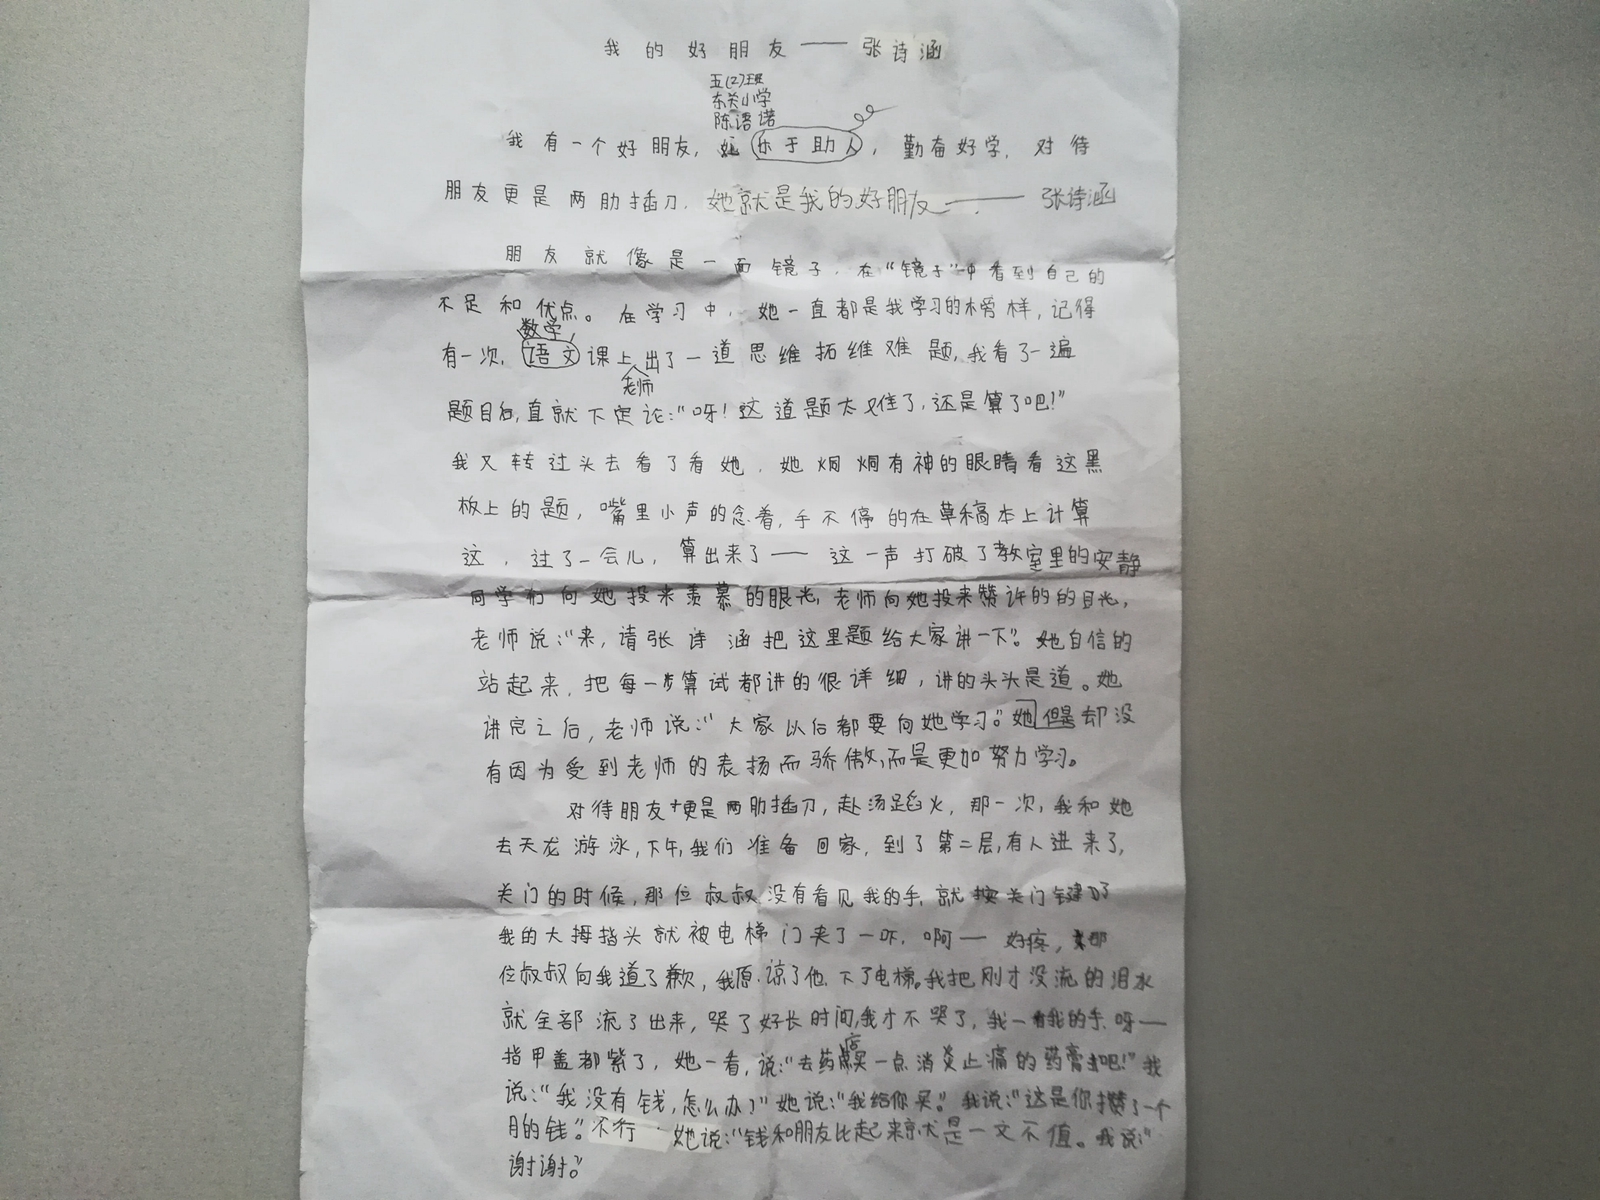 我的好朋友——张诗涵
五(2)班
东关小学
陈语诺
我有一个好朋友,她乐于助人,勤奋好学,对待
朋友更是两肋插刀,她就是我的好朋友——张诗涵
朋友就像是一面镜子,在“镜子”中看到自己的
不足和优点。在学习中,她一直都是我学习的榜样,记得
数学
有一次,语文课上出了一道思维拓维难题,我看了一遍
老师
题目后,直就下定论:“呀!这道题太难了,还是算了吧!”
我又转过头去看了看她,她炯炯有神的眼睛看这黑
板上的题,嘴里小声的念着,手不停的在草稿本上计算
这,过了一会儿,算出来了——这一声打破了教室里的安静
同学们向她投来羡慕的眼光,老师向她投来赞许的的目光,
老师说:“来,请张诗涵把这里题给大家讲一下”。她自信的
站起来,把每一步算试都讲的很详细,讲的头头是道。她
讲完之后,老师说:“大家以后都要向她学习”。她但是却没
有因为受到老师的表扬而骄傲,而是更加努力学习。
对待朋友更是两肋插刀,赴汤蹈火,那一次,我和她
去天龙游泳,下午,我们准备回家,到了第二层,有人进来了,
关门的时候,那位叔叔没有看见我的手,就按关门键了
我的大拇指头就被电梯门夹了一下,啊——好疼,那
位叔叔向我道了歉,我愿谅了他,下了电梯。我把刚才没流的泪水
就全部流了出来,哭了好长时间,我才不哭了,我一看我的手,呀——
店
指甲盖都紫了,她一看,说:“去药买一点消炎止痛的药膏吧!”我
说:“我没有钱,怎么办?”她说:“我给你买”。我说:“这是你攒了一个
月的钱”。不行,她说:“钱和朋友比起来就是一文不值。我说:“
谢谢”。